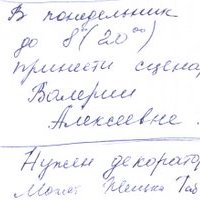 В понедельник
до 8ч (20⁰⁰)
принести сцена
Валерии
Алексеевне.
Нужен декоратор
Может